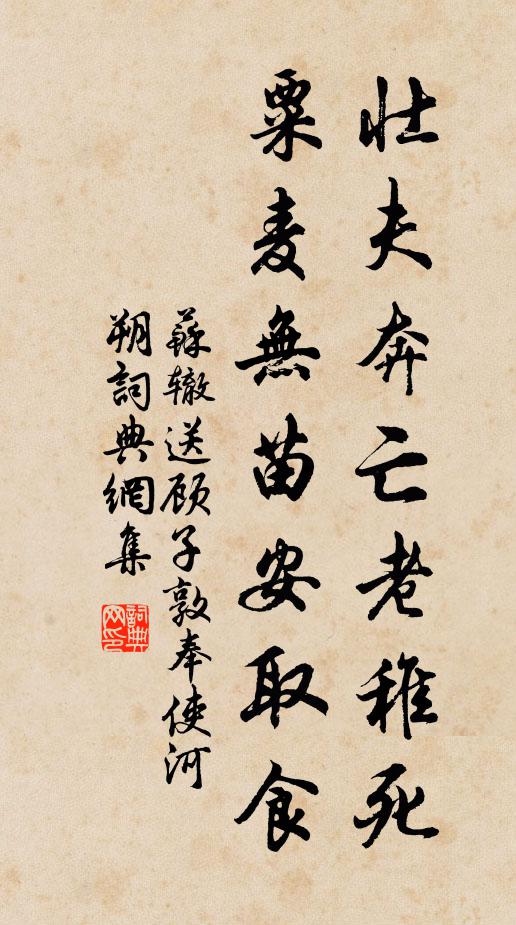 壯夫奔亡老稚死
粟麦無苗安取食
蘇辙送顾子敦奉使河
朔詞典網集
詞典網印